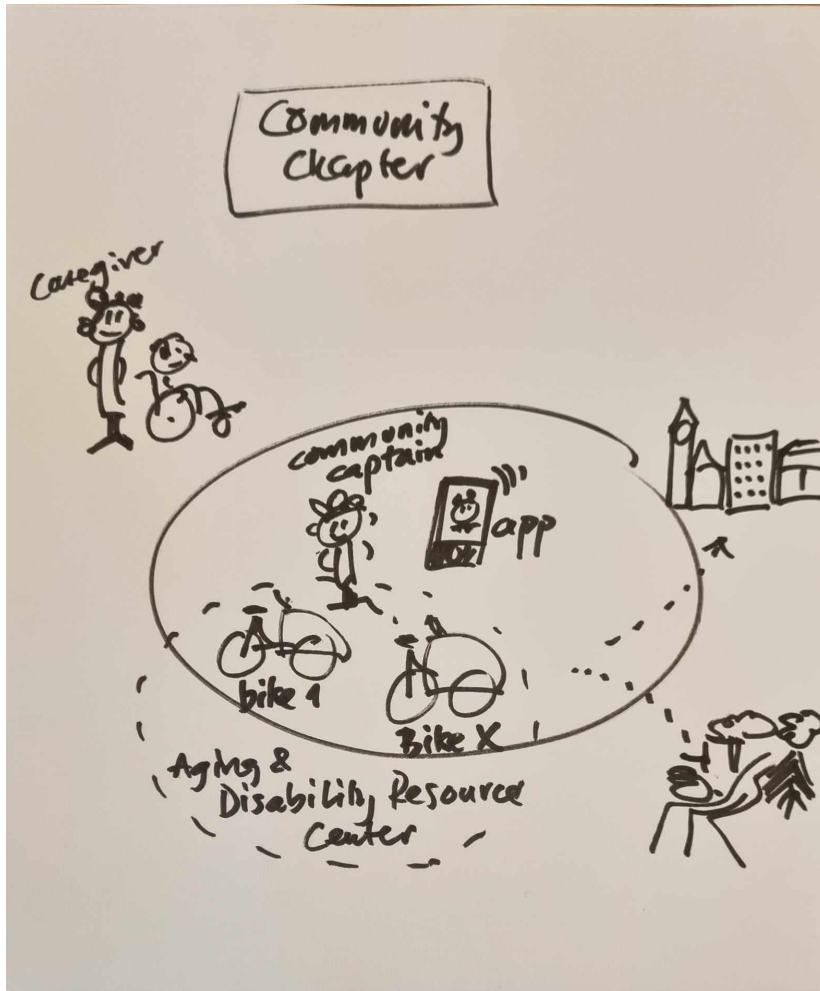 Community
Chapter
Caregiver
community
captain
app
bike 1
Bike X
Aging &
Disability Resource
Center